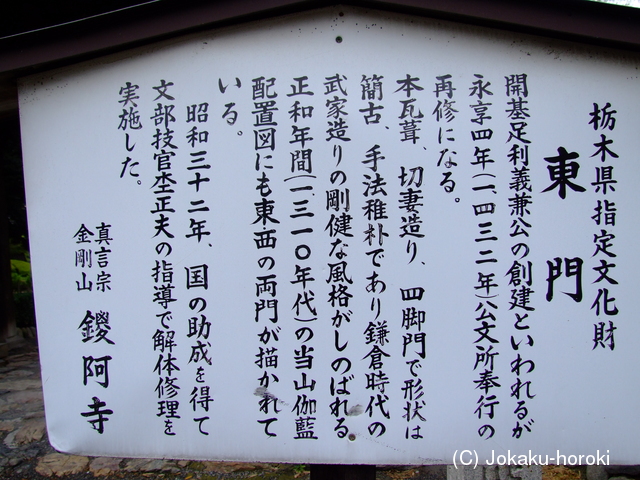 栃木県指定文化財
東門
開基足利義兼公の創建といわれるが
永享四年(一、四三二年)公文所奉行の
再修になる。
本瓦葺、切妻造り、四脚門で形状は
簡古、手法稚朴であり鎌倉時代の
武家造りの剛健な風格がしのばれる
正和年間(一三一〇年代)の当山伽藍
配置図にも東・西の両門が描かれて
いる。
昭和三十二年、国の助成を得て
文部技官杢正夫の指導で解体修理を
実施した。
真言宗
金剛山
鑁阿寺
(C) Jokaku-horoki